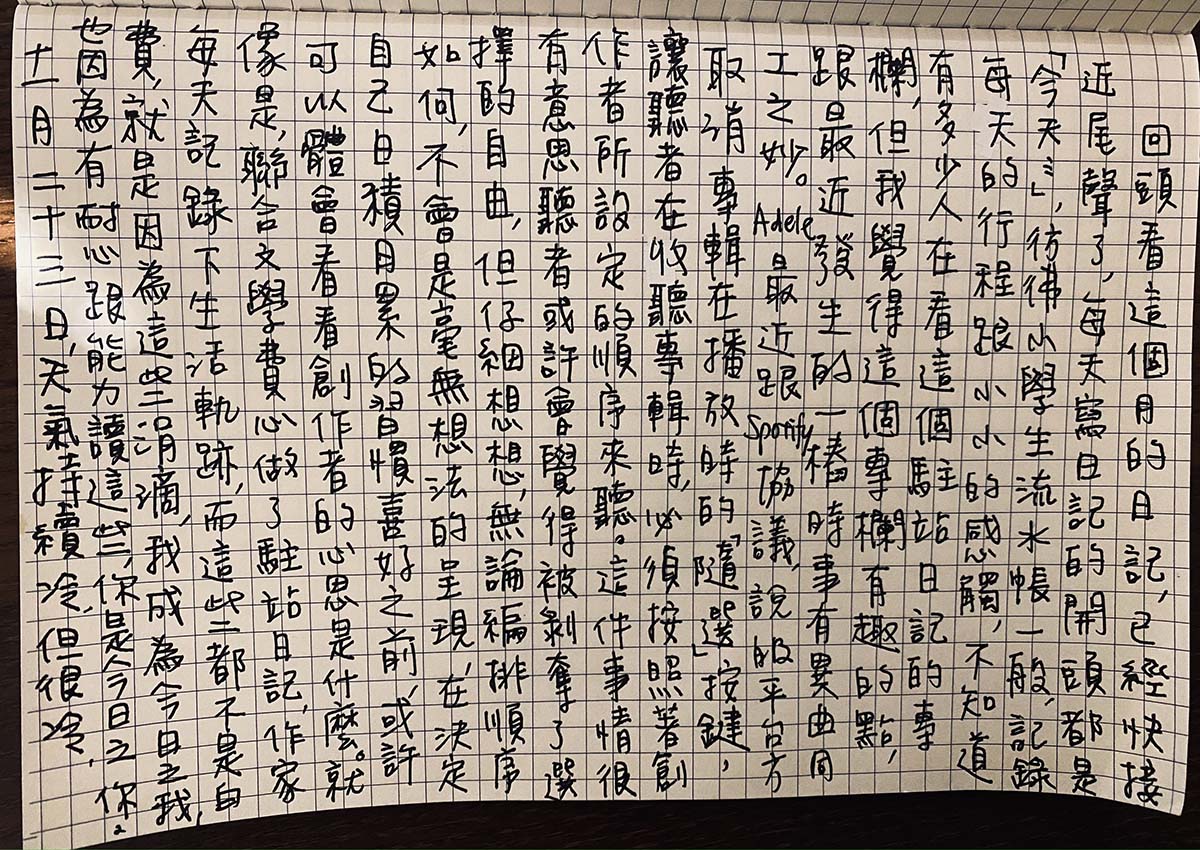 回頭看這個月的日記，已經快接
近尾聲了，每天寫日記的開頭都是
「今天⋯」，彷彿小學生流水帳一般，記錄
每天的行程跟小小的感觸，不知道
有多少人在看這個駐站日記的專
欄，但我覺得這個專欄有趣的點，
跟最近發生的一樁時事有異曲同
工之妙。Adele最近跟Spotify協議，說服平台方
取消專輯在播放時的「隨選」按鍵，
讓聽者在收聽專輯時，必須按照著創
作者所設定的順序來聽。這件事情很
有意思聽者或許會覺得被剝奪了選
擇的自由，但仔細想想，無論編排順序
如何，不會是毫無想法的呈現，在決定
自己日積月累的習慣喜好之前，或許
可以體會看看創作者的心思是什麼。就
像是，聯合文學費心做了駐站日記，作家
每天記錄下生活軌跡，而這些都不是白
費，就是因為這些涓滴，我成為今日之我，
也因為有耐心跟能力讀這些，你是今日之你。
十一月二十三日，天氣持續冷，但很冷，